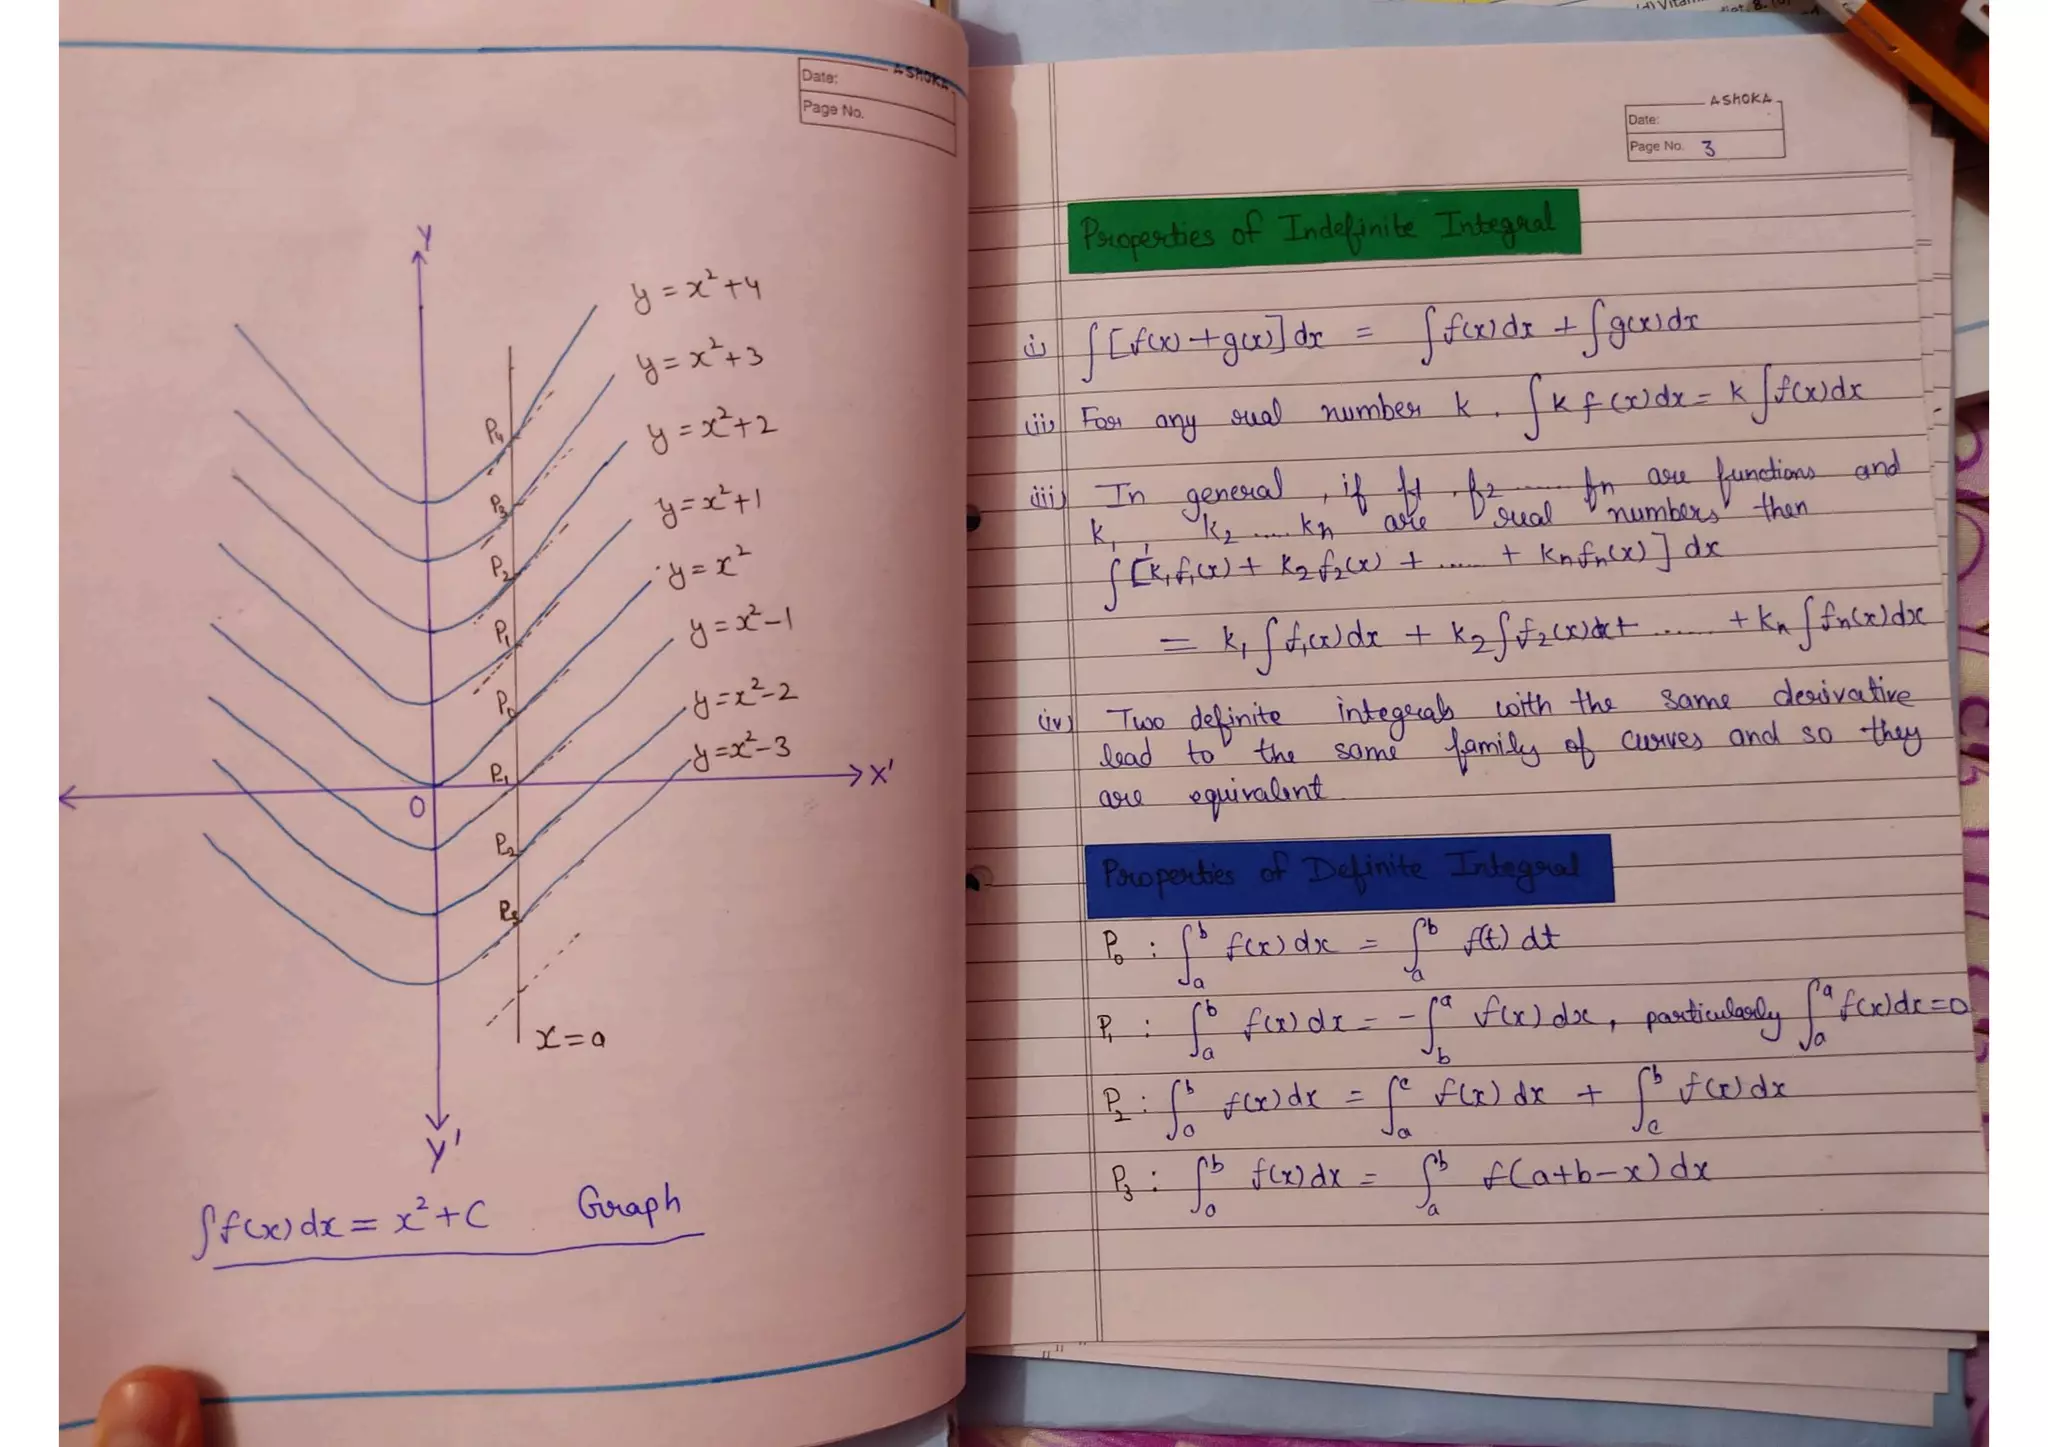 ASHOKA
Date:
Page No.
Y
y = x²+4
y = x²+3
y = x²+2
y = x²+1
y = x²
y = x²-1
y = x²-2
y = x²-3
P₄
P₃
P₂
P₁
P₀
P₋₁
P₋₂
O
X'
x = a
Y'
∫f(x)dx = x²+C Graph
ASHOKA
Date:
Page No. 3
Properties of Indefinite Integral
(i) ∫[f(x)+g(x)]dx = ∫f(x)dx + ∫g(x)dx
(ii) For any real number k. ∫k f(x)dx = k∫f(x)dx
(iii) In general, if f1, f2 ...... fn are functions and
k₁, k₂ ..... kn are real numbers then
∫[k₁f₁(x) + k₂f₂(x) + ...... + knfn(x)] dx
= k₁∫f₁(x)dx + k₂∫f₂(x)dx+ ...... + kn∫fn(x)dx
(iv) Two definite integrals with the same derivative
lead to the same family of curves and so they
are equivalent
Properties of Definite Integral
P₀ : ∫ₐᵇ f(x)dx = ∫ₐᵇ f(t) dt
P₁ : ∫ₐᵇ f(x)dx = -∫_b^a f(x)dx, particularly ∫ₐᵃ f(x)dx=0
P₂ : ∫ₐᵇ f(x)dx = ∫ₐᶜ f(x)dx + ∫_c^b f(x)dx
P₃ : ∫ₐᵇ f(x)dx = ∫ₐᵇ f(a+b-x)dx